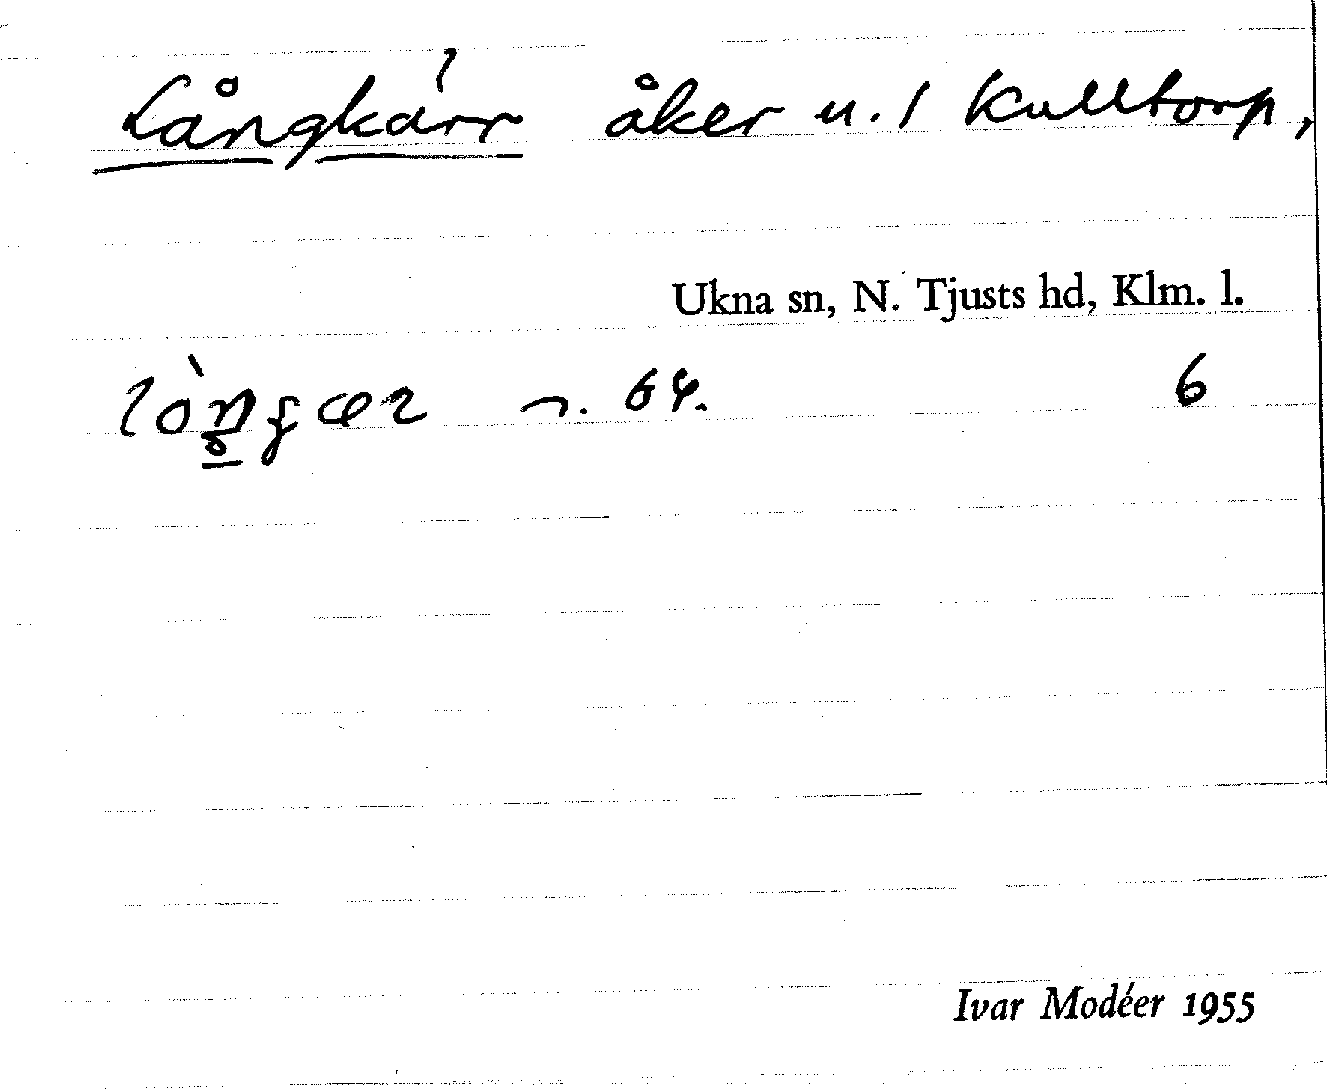 Långkärr åker u. 1 Kulltorp,
Ukna sn, N. Tjusts hd, Klm. l.
n. 64. 6
Ivar Modéer 1955